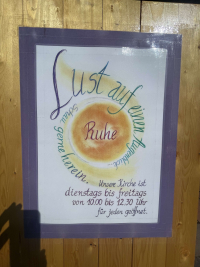 Lust auf einen Augenblick
Ruhe
Schau gerne herein.
Unsere Kirche ist
dienstags bis freitags
von 10.00 bis 12.30 Uhr
für jeden geöffnet.